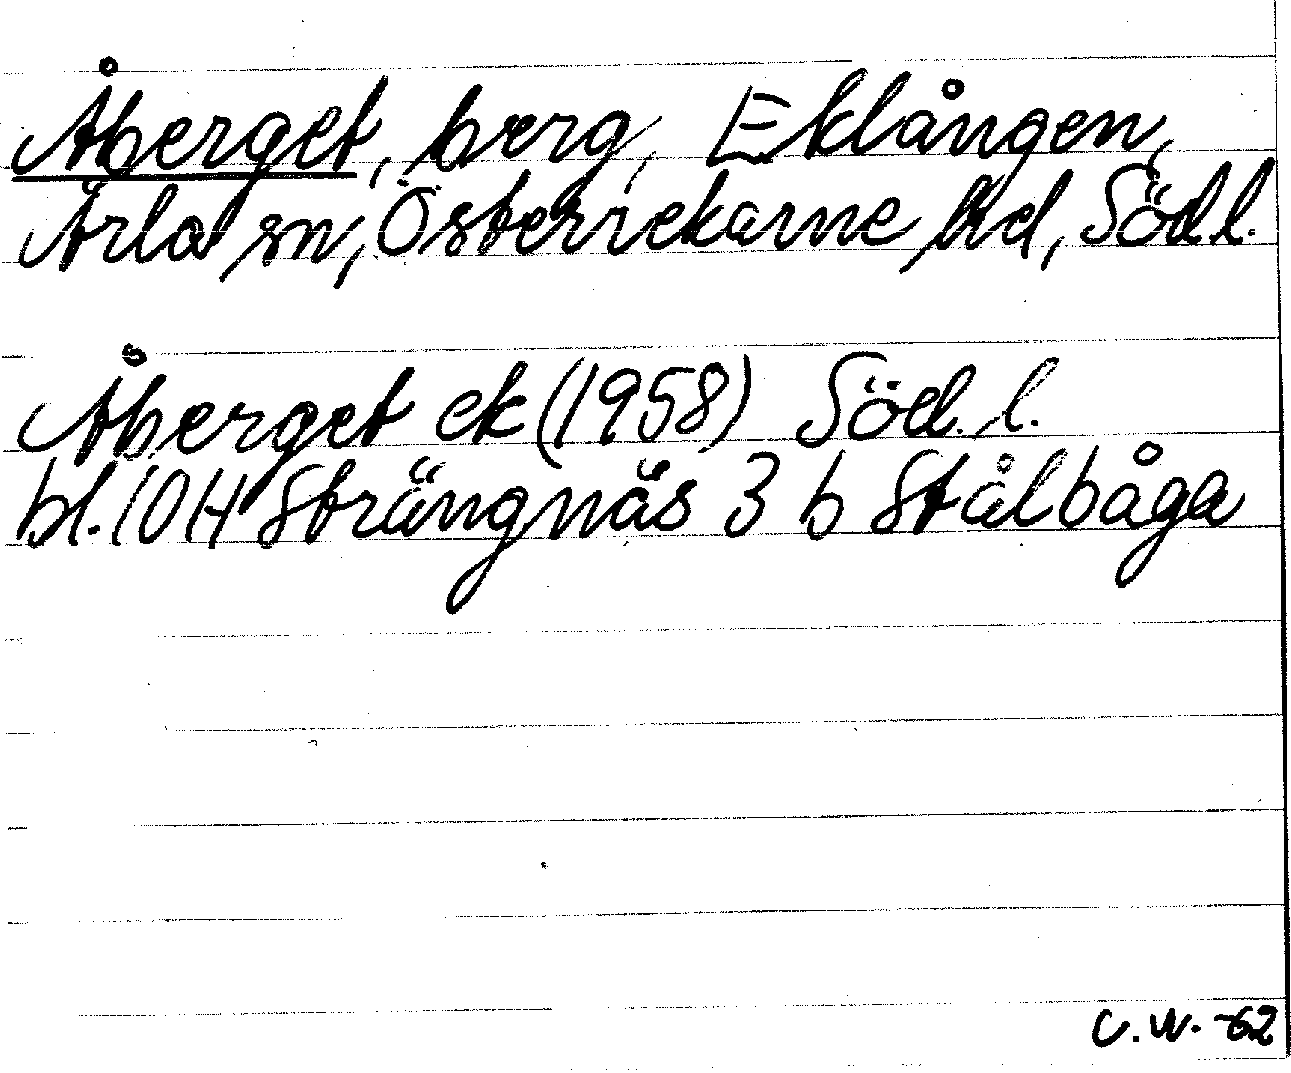 Åberget, berg, Eklången,
Ärla sn, Österrekarne hd, Södl.
Åberget ek (1958) Söd. l.
bl. 10 H Strängnäs 3 b Stålbåga
C.W. -62